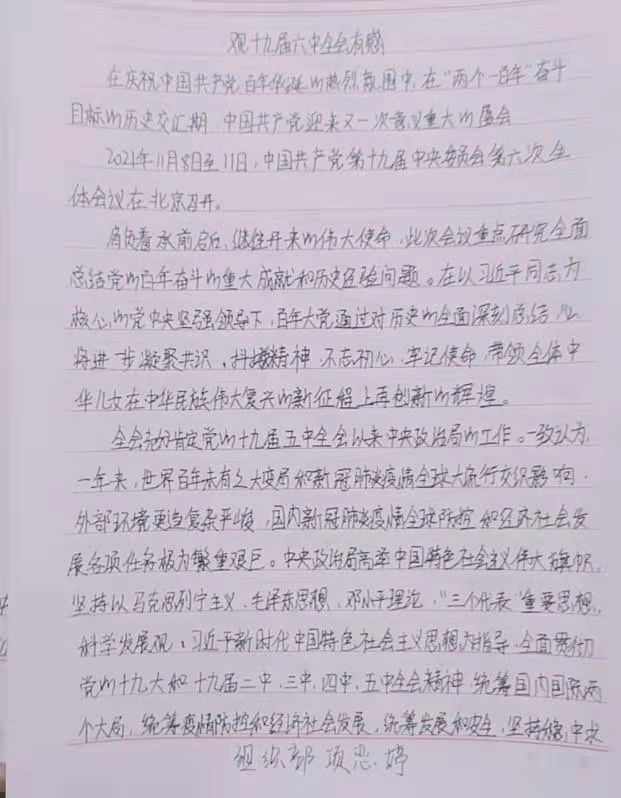 观十九届六中全会有感
在庆祝中国共产党百年华诞的热烈氛围中,在“两个一百年”奋斗
目标的历史交汇期,中国共产党迎来又一次意义重大的盛会
2021年11月8日至11日,中国共产党第十九届中央委员会第六次全
体会议在北京召开。
肩负着承前启后,继往开来的伟大使命,此次会议重点研究全面
总结党的百年奋斗的重大成就和历史经验问题。在以习近平同志为
核心的党中央坚强领导下,百年大党通过对历史的全面深刻总结,必
将进一步凝聚共识,抖擞精神,不忘初心,牢记使命,带领全体中
华儿女在中华民族伟大复兴的新征程上再创新的辉煌。
全会充分肯定党的十九届五中全会以来中央政治局的工作。一致认为,
一年来,世界百年未有之大变局和新冠肺炎疫情全球大流行交织影响,
外部环境更趋复杂严峻,国内新冠肺炎疫情全球防控和经济社会发
展各项任务极为繁重艰巨。中央政治局高举中国特色社会主义伟大旗帜,
坚持以马克思列宁主义、毛泽东思想、邓小平理论、“三个代表”重要思想、
科学发展观、习近平新时代中国特色社会主义思想为指导,全面贯彻
党的十九大和十九届二中、三中、四中、五中全会精神,统筹国内国际两
个大局,统筹疫情防控和经济社会发展,统筹发展和安全,坚持稳中求
组织部 项恋婷